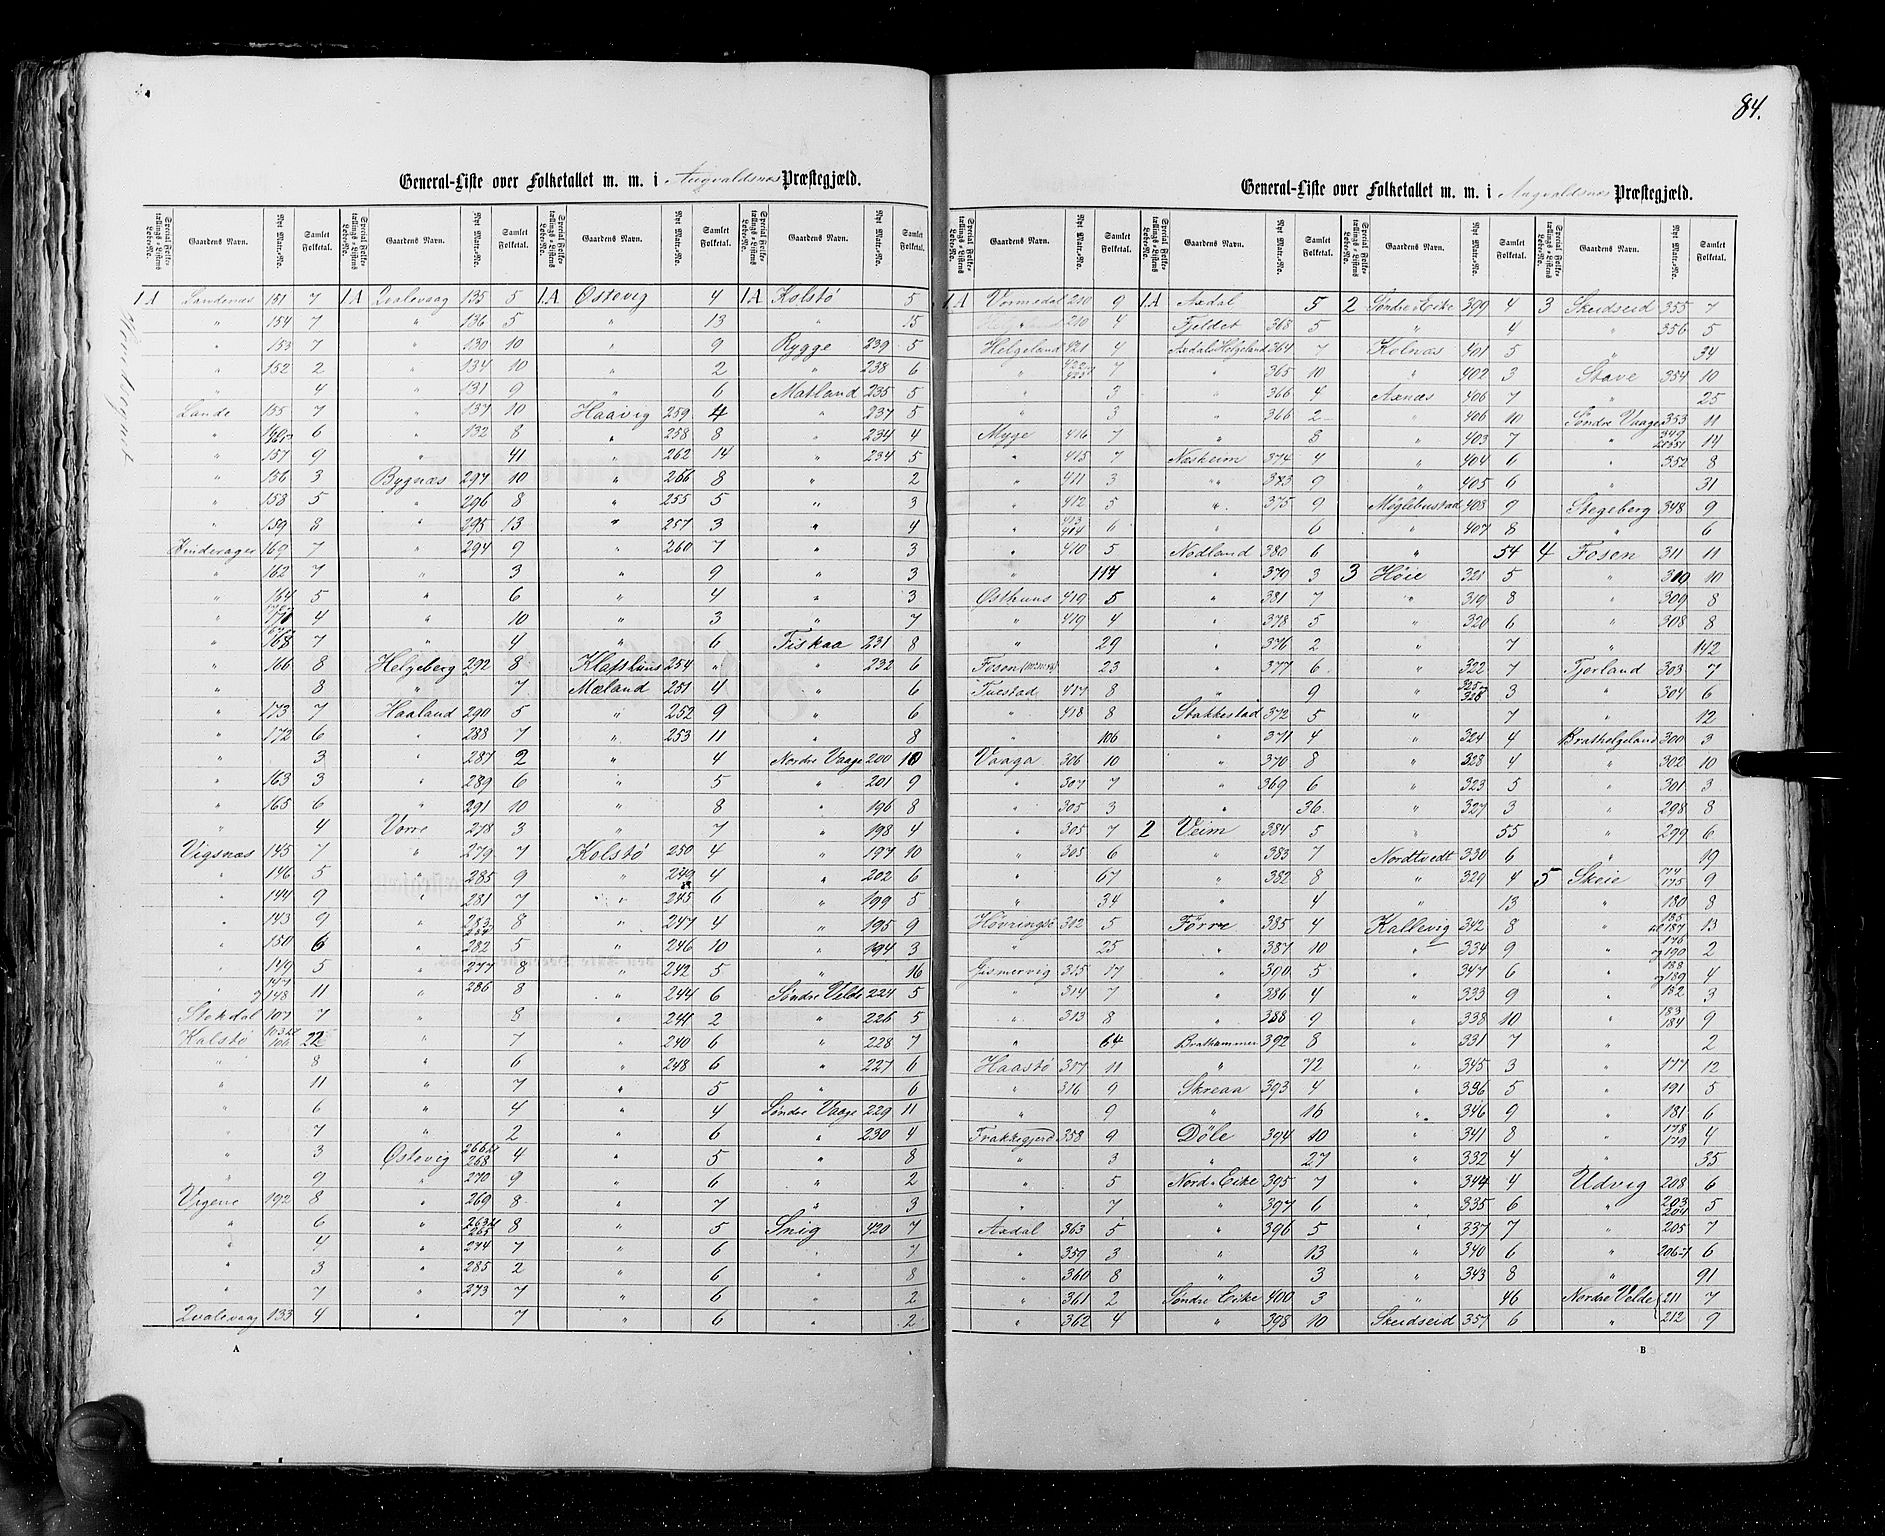 84.
General-Liste over Folketallet m. m. i Augvaldsnæs Præstegjæld.
Special Folketællings-Listens Løbe-No. Gaardens Navn. Nyt Matr.-No. Samlet Folketal.
1A Sandenæs 151 7
" 154 7
" 153 7
" 152 2
" 4
Sande 155 7
" 6
" 157 9
" 156 3
" 158 5
" 159 8
169 7
" 162 7
" 164 5
" 4
" 168 7
" 166 8
" 8
" 173 7
" 172 6
" 3
" 163 3
" 165 6
" 4
Vigsnæs 145 7
" 146 5
" 144 9
" 143 9
" 150 6
" 149 5
" 147 og 148 11
Stokdal 107 7
Kalstø 22
" 8
" 11
" 6
" 7
" 3
" 9
192 8
" 6
" 4
" 3
" 7
Qvalevaag 133 4
1A Qvalevaag 135 5
" 136 5
" 130 10
" 134 10
" 131 9
" 137 10
" 132 8
" 41
Bygnæs 297 10
" 296 8
" 295 13
" 294 9
" 3
" 6
" 10
" 4
Helgeberg 292 8
" 7
Haaland 290 5
" 288 7
" 287 2
" 289 6
" 291 10
Vorre 278 3
" 279 7
" 285 9
" 281 7
" 283 284 8
" 282 5
" 277 8
" 286 8
" 8
" 7
" 6
" 7
" 4
" 2
Østevig 266 til 268 4
" 270 9
" 269 8
" 263 til 265 8
" 274 7
" 285 2
" 273 7
" 7
1A Østevig 4
" 13
" 9
" 2
" 6
Haavig 259 4
" 258 8
" 262 14
" 256 8
" 255 5
" 257 3
" 260 7
" 9
" 4
" 3
" 6
254 "
Mæland 251 4
" 252 9
" 253 11
" 4
" 5
" 8
" 7
Kolstø 250 4
" 249 4
" 245 6
" 247 4
" 246 10
" 242 5
" 244 6
" 241 2
" 240 6
" 248 6
" 5
" 4
" 6
" 5
" 6
" 7
" 5
" 6
" 6
" 6
" 6
1A Kolstø 5
" 15
Rygge 239 5
" 238 6
Matland 235 5
" 237 5
" 234 4
" 234 5
" 2
" 3
" 4
" 3
" 3
" 3
" 7
Fiskaa 231 8
" 232 6
" 6
" 6
" 8
Nordre Vaage 200 10
" 201 9
" 196 8
" 198 4
" 197 10
" 202 6
" 199 5
" 195 9
" 194 3
" 16
Søndre Velde 224 5
" 226 5
" 228 7
" 227 6
" 6
Søndre Vaage 229 11
" 230 4
" 8
" 2
" 3
Snig 420 7
" 7
" 8
" 2
" 2
A
General-Liste over Folketallet m. m. i Augvaldsnæs Præstegjæld.
Special Folketællings-Listens Løbe-No. Gaardens Navn. Nyt Matr.-No. Samlet Folketal.
1A Vormedal 210 9
" 210 4
Helgeland 421 4
" 422 423 7
" 3
" 3
Myge 416 7
" 415 7
" 411 3
" 412 5
" 413 414 6
" 410 5
" 117
Østhuus 419 5
" 419 4
" 29
Fosen 23
Tuestad 417 8
" 418 8
" 106
Vaaga 306 10
" 307 7
" 305 3
" 305 7
" 305 6
" 67
" 34
Høvringsø 312 5
" 25
Gismervig 315 17
" 314 7
" 313 8
" 64
Haastø 317 11
" 316 9
" 9
Frakkegjerd 358 9
" 3
" 5
" 7
Axdal 363 5
" 359 3
" 360 8
" 361 2
" 362 4
1A Axdal 5
Fjeldet 368 5
Axdal Helgeland 364 7
" 365 10
" 366 4
" 366 2
" 3
Næsheim 374 4
" 373 9
" 375 9
" 6
Nodland 380 6
" 379 3
" 381 7
" 378 5
" 376 2
" 377 6
" 9
Stakkestad 372 5
" 371 4
" 370 8
" 369 6
" 36
2 Veim 384 5
" 383 7
" 382 8
" 4
Førre 385 4
" 387 10
" 390 5
" 386 4
" 388 9
Bratkammer 392 8
" 72
Skreaa 393 4
" 16
Døle 394 10
" 27
Nord-Eike 395 7
" 397 6
" 396 5
" 13
" 3
Søndre Eike 400 3
" 398 10
2 Søndre Eike 399 4
" 4
Kolnæs 401 5
" 402 3
Axnæs 406 7
" 406 10
" 403 7
" 404 6
" 405 6
Moglebustad 408 9
" 407 8
" 54
3 Høie 321 5
" 319 8
" 320 6
" 7
" 322 7
" 3
" 7
" 324 4
" 328 4
" 323 5
" 327 3
" 55
Nordtvedt 330 6
" 329 4
" 13
Kallevig 342 8
" 334 9
" 347 6
" 333 9
" 338 10
" 331 7
" 345 3
" 336 5
" 346 9
" 341 8
" 332 4
" 344 4
" 335 6
" 337 7
" 340 6
" 343 8
" 46
Skeidseid 357 6
3 Skeidseid 355 7
" 356 5
" 34
Stave 354 10
" 25
Søndre Vaage 353 11
" 14
" 352 8
" 31
Stegeberg 348 9
" 6
4 Fosen 311 11
" 310 10
" 309 8
" 308 8
" 142
Fjorland 303 7
" 304 6
" 12
Brathelgeland 300 3
" 302 10
" 301 3
" 298 8
" 299 6
" 19
5 Skeie 174 175 9
" 180 8
" 185 til 187 13
" 176 og 190 2
" 188 og 189 4
" 182 3
" 183 184 9
" 2
" 177 12
" 191 5
" 181 6
" 178 179 4
" 35
Udvig 208 6
" 203 204 5
" 205 7
" 206-7 6
" 91
Nordre Velde 211 7
" 212 9
B